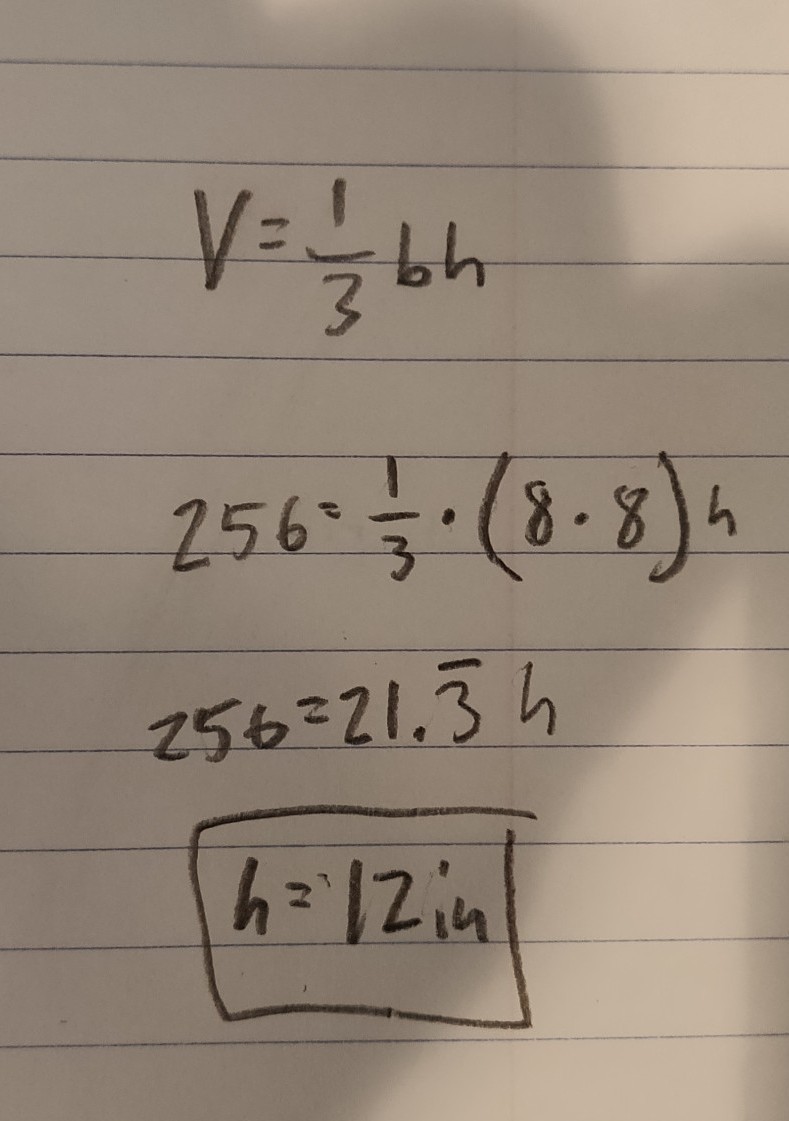 V = 1/3 bh
256 = 1/3 · (8 · 8) h
256 = 21.3̅ h
h = 12 in